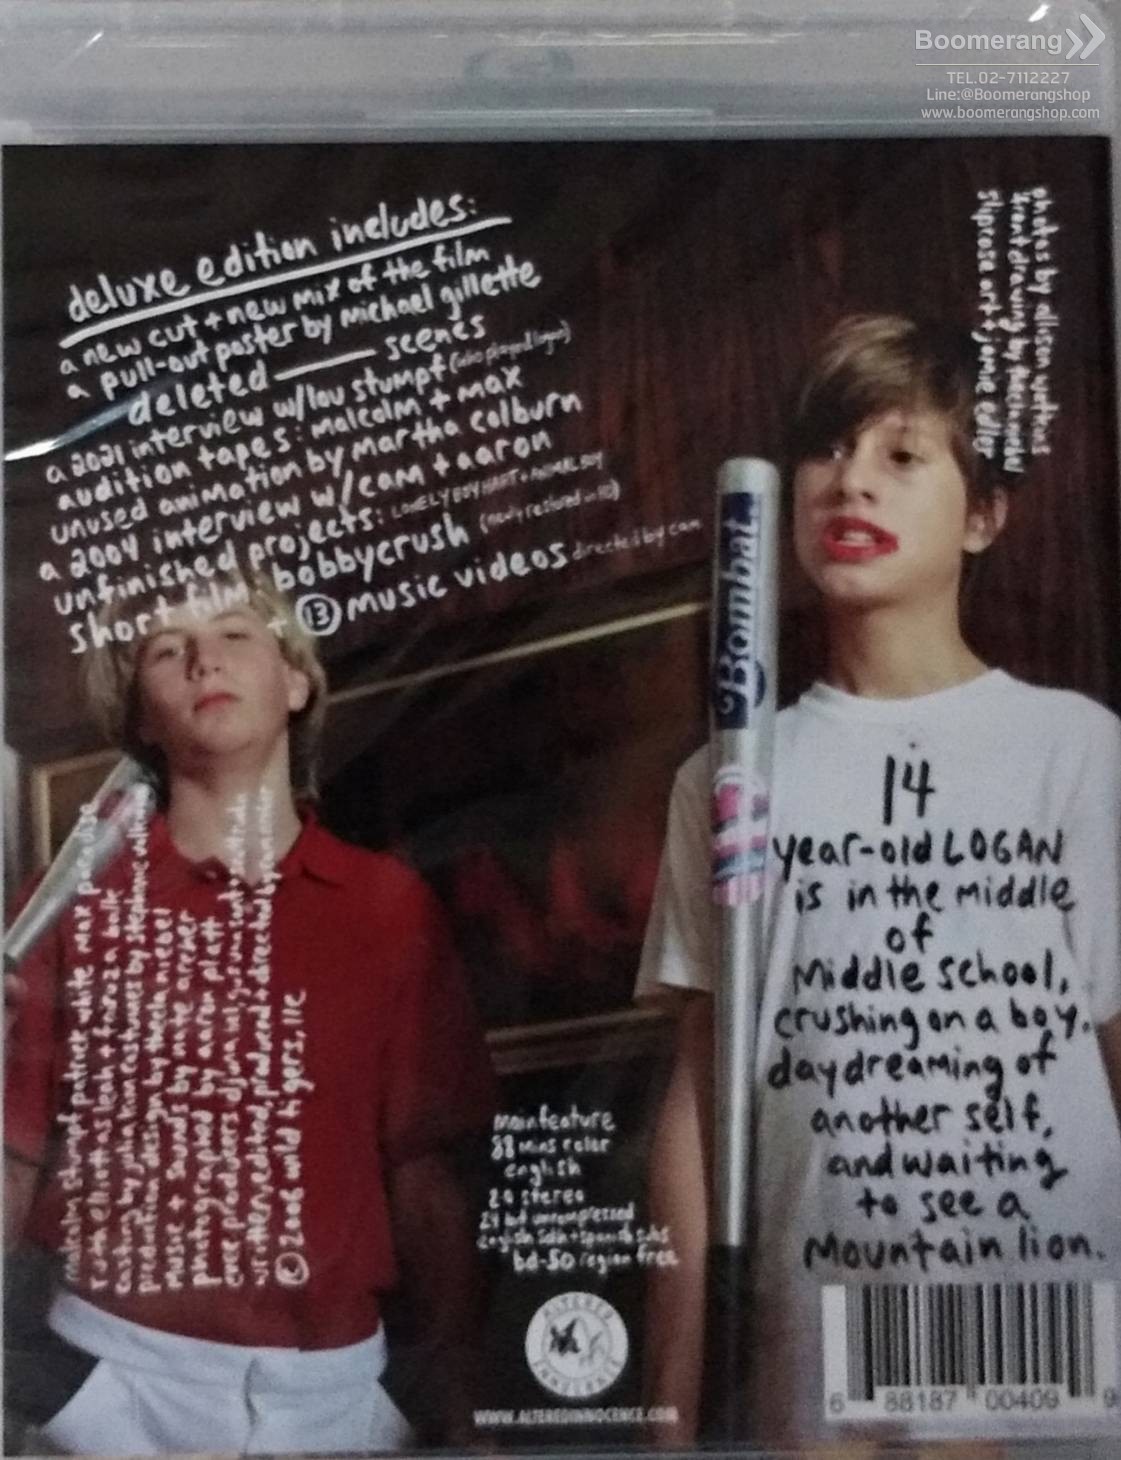 Boomerang
TEL.02-7112227
Line:@Boomerangshop
www.boomerangshop.com
deluxe edition includes:
a new cut + new mix of the film
a pull-out poster by Michael gillette
deleted scenes
a 2021 interview w/lou stumpf (who played logan)
audition tapes: malcolm + max
unused animation by martha colburn
a 2004 interview w/cam + aaron
unfinished projects: LONELYBOYHART + ANIMAL BOY
short film: bobbycrush (newly restored in HD)
+ 13 music videos directed by cam
photos by alison
front drawing by
slipcase art: jamie
malcolm stumpf patrick white max paradise
as leah + fairuza balk
casting by costumes by stephanie
production design by thack
music + sounds by nate archer
photographed by aaron platt
exec producers
written, edited, produced + directed by
© 2006 wild tigers, llc
14
year-old LOGAN
is in the middle
of
middle school,
crushing on a boy,
daydreaming of
another self,
and waiting
to see a
mountain lion.
main feature
88 mins color
english
2.0 stereo
24 bit uncompressed
english sdh + spanish subs
bd-50 region free
Bombat
ALTERED
INNOCENCE
WWW.ALTEREDINNOCENCE.COM
6 88187 00409 9